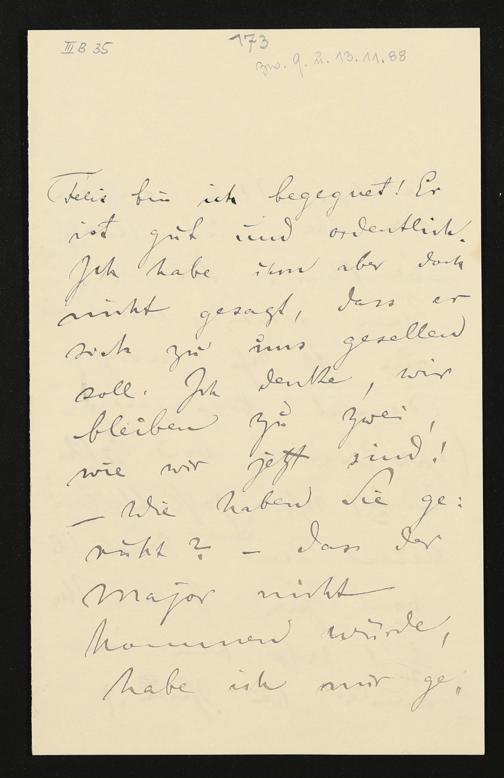 III B 35
173
zw. 9. u. 13.11.88
Felix bin ich begegnet! Er
ist gut und ordentlich.
Ich habe ihm aber doch
nicht gesagt, dass er
sich zu uns gesellen
soll. Ich denke, wir
bleiben zu zwei,
wie wir jetzt sind!
– Wie haben Sie ge:
ruht? – dass der
Major nicht
kommen würde,
habe ich mir ge„